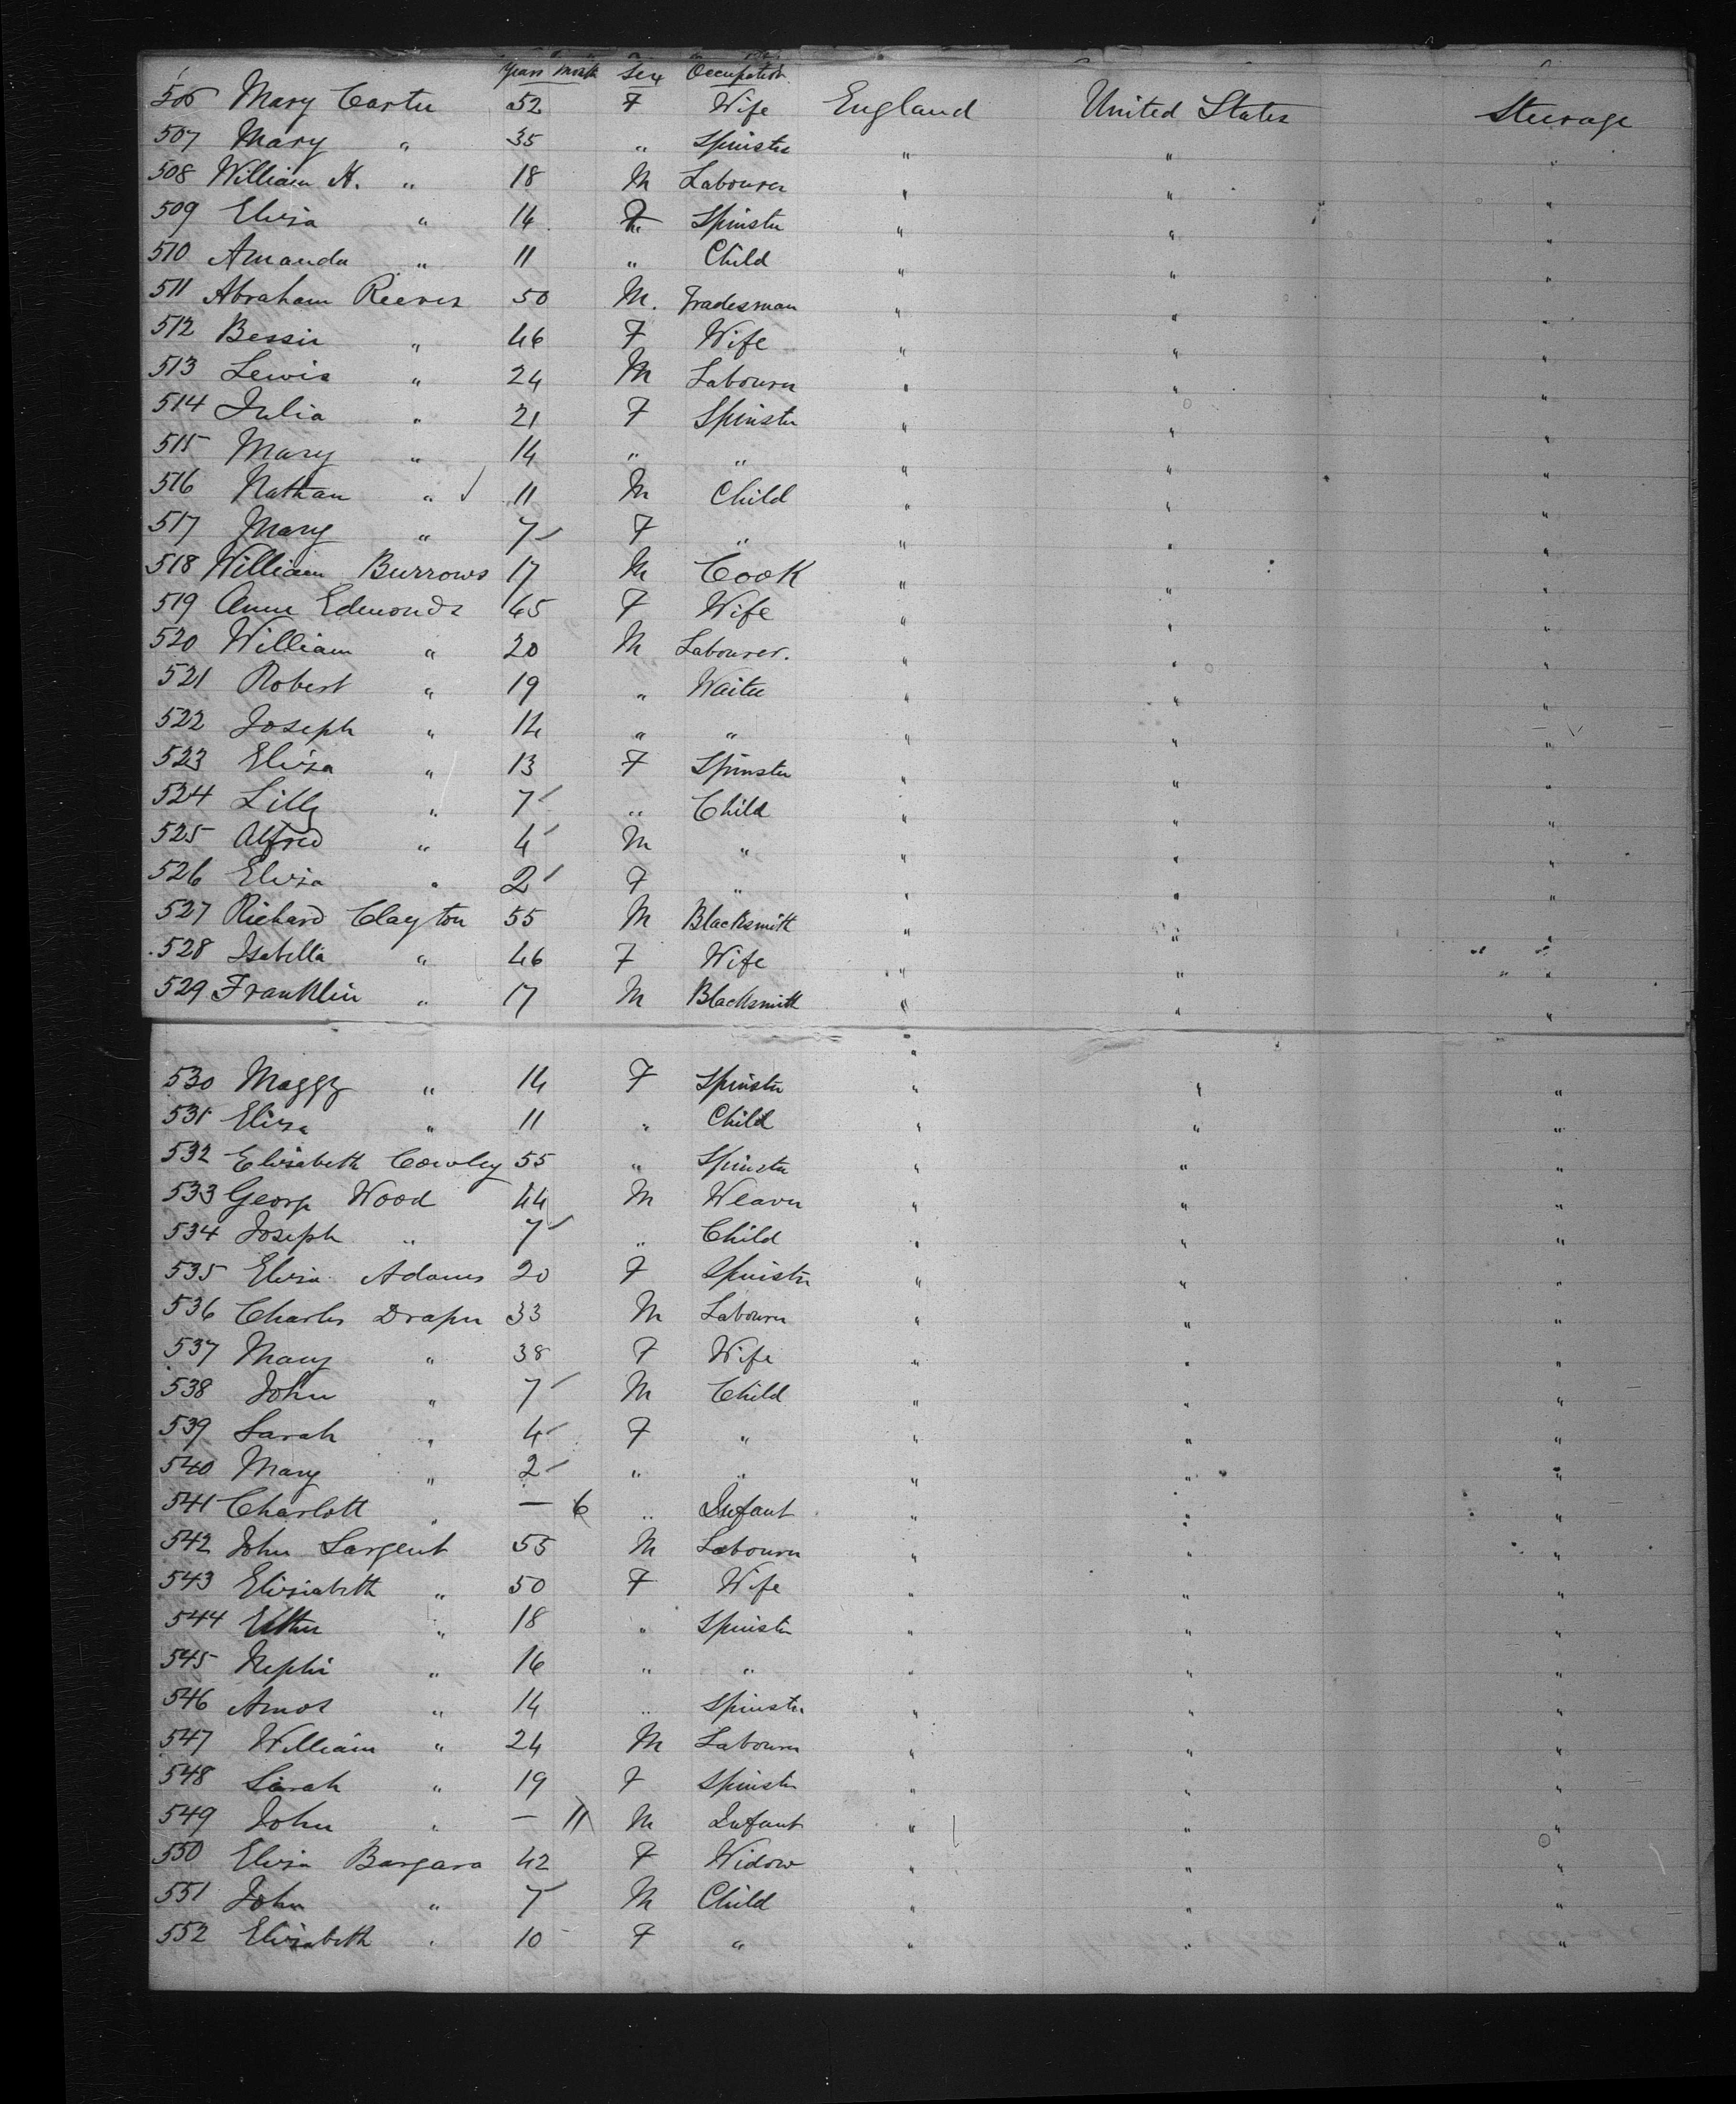 Years Month Sex Occupation
506 Mary Carter 52 F Wife England United States Steerage
507 Mary " 35 " Spinster " " "
508 William H. " 18 M Labourer " " "
509 Eliza " 14 F Spinster " " "
510 Amanda " 11 " Child " " "
511 Abraham Reeves 50 M. Tradesman " " "
512 Bessie " 46 F Wife " " "
513 Lewis " 24 M Labourer " " "
514 Julia " 21 F Spinster " " "
515 Mary " 14 " " " " "
516 Nathan " 11 M Child " " "
517 Mary " 7 F " " " "
518 William Burrows 17 M Cook " " "
519 Anne Edmonds 45 F Wife " " "
520 William " 20 M Labourer. " " "
521 Robert " 19 " Waiter " " "
522 Joseph " 14 " " " " "
523 Eliza " 13 F Spinster " " "
524 Lilly " 7 " Child " " "
525 Alfred " 4 M " " " "
526 Eliza " 2 F " " " "
527 Richard Clayton 55 M Blacksmith " " "
528 Isabella " 46 F Wife " " "
529 Franklin " 17 M Blacksmith " " "
530 Maggy " 14 F Spinster " " "
531 Eliza " 11 " Child " " "
532 Elisabeth Cowley 55 " Spinster " " "
533 George Wood 44 M Weaver " " "
534 Joseph " 7 " Child " " "
535 Eliza Adams 20 F Spinster " " "
536 Charles Draper 33 M Labourer " " "
537 Mary " 38 F Wife " " "
538 John " 7 M Child " " "
539 Sarah " 4 F " " " "
540 Mary " 2 " " " " "
541 Charlott " — 6 " Infant " " "
542 John Sargent 55 M Labourer " " "
543 Elisiabeth " 50 F Wife " " "
544 Esther " 18 " Spinster " " "
545 Nephi " 16 " " " " "
546 Amos " 14 " Spinster " " "
547 William " 24 M Labourer " " "
548 Sarah " 19 F Spinster " " "
549 John " — 11 M Infant " " "
550 Eliza Bargara 42 F Widow " " "
551 John " 7 M Child " " "
552 Elizabeth " 10 F " " " "